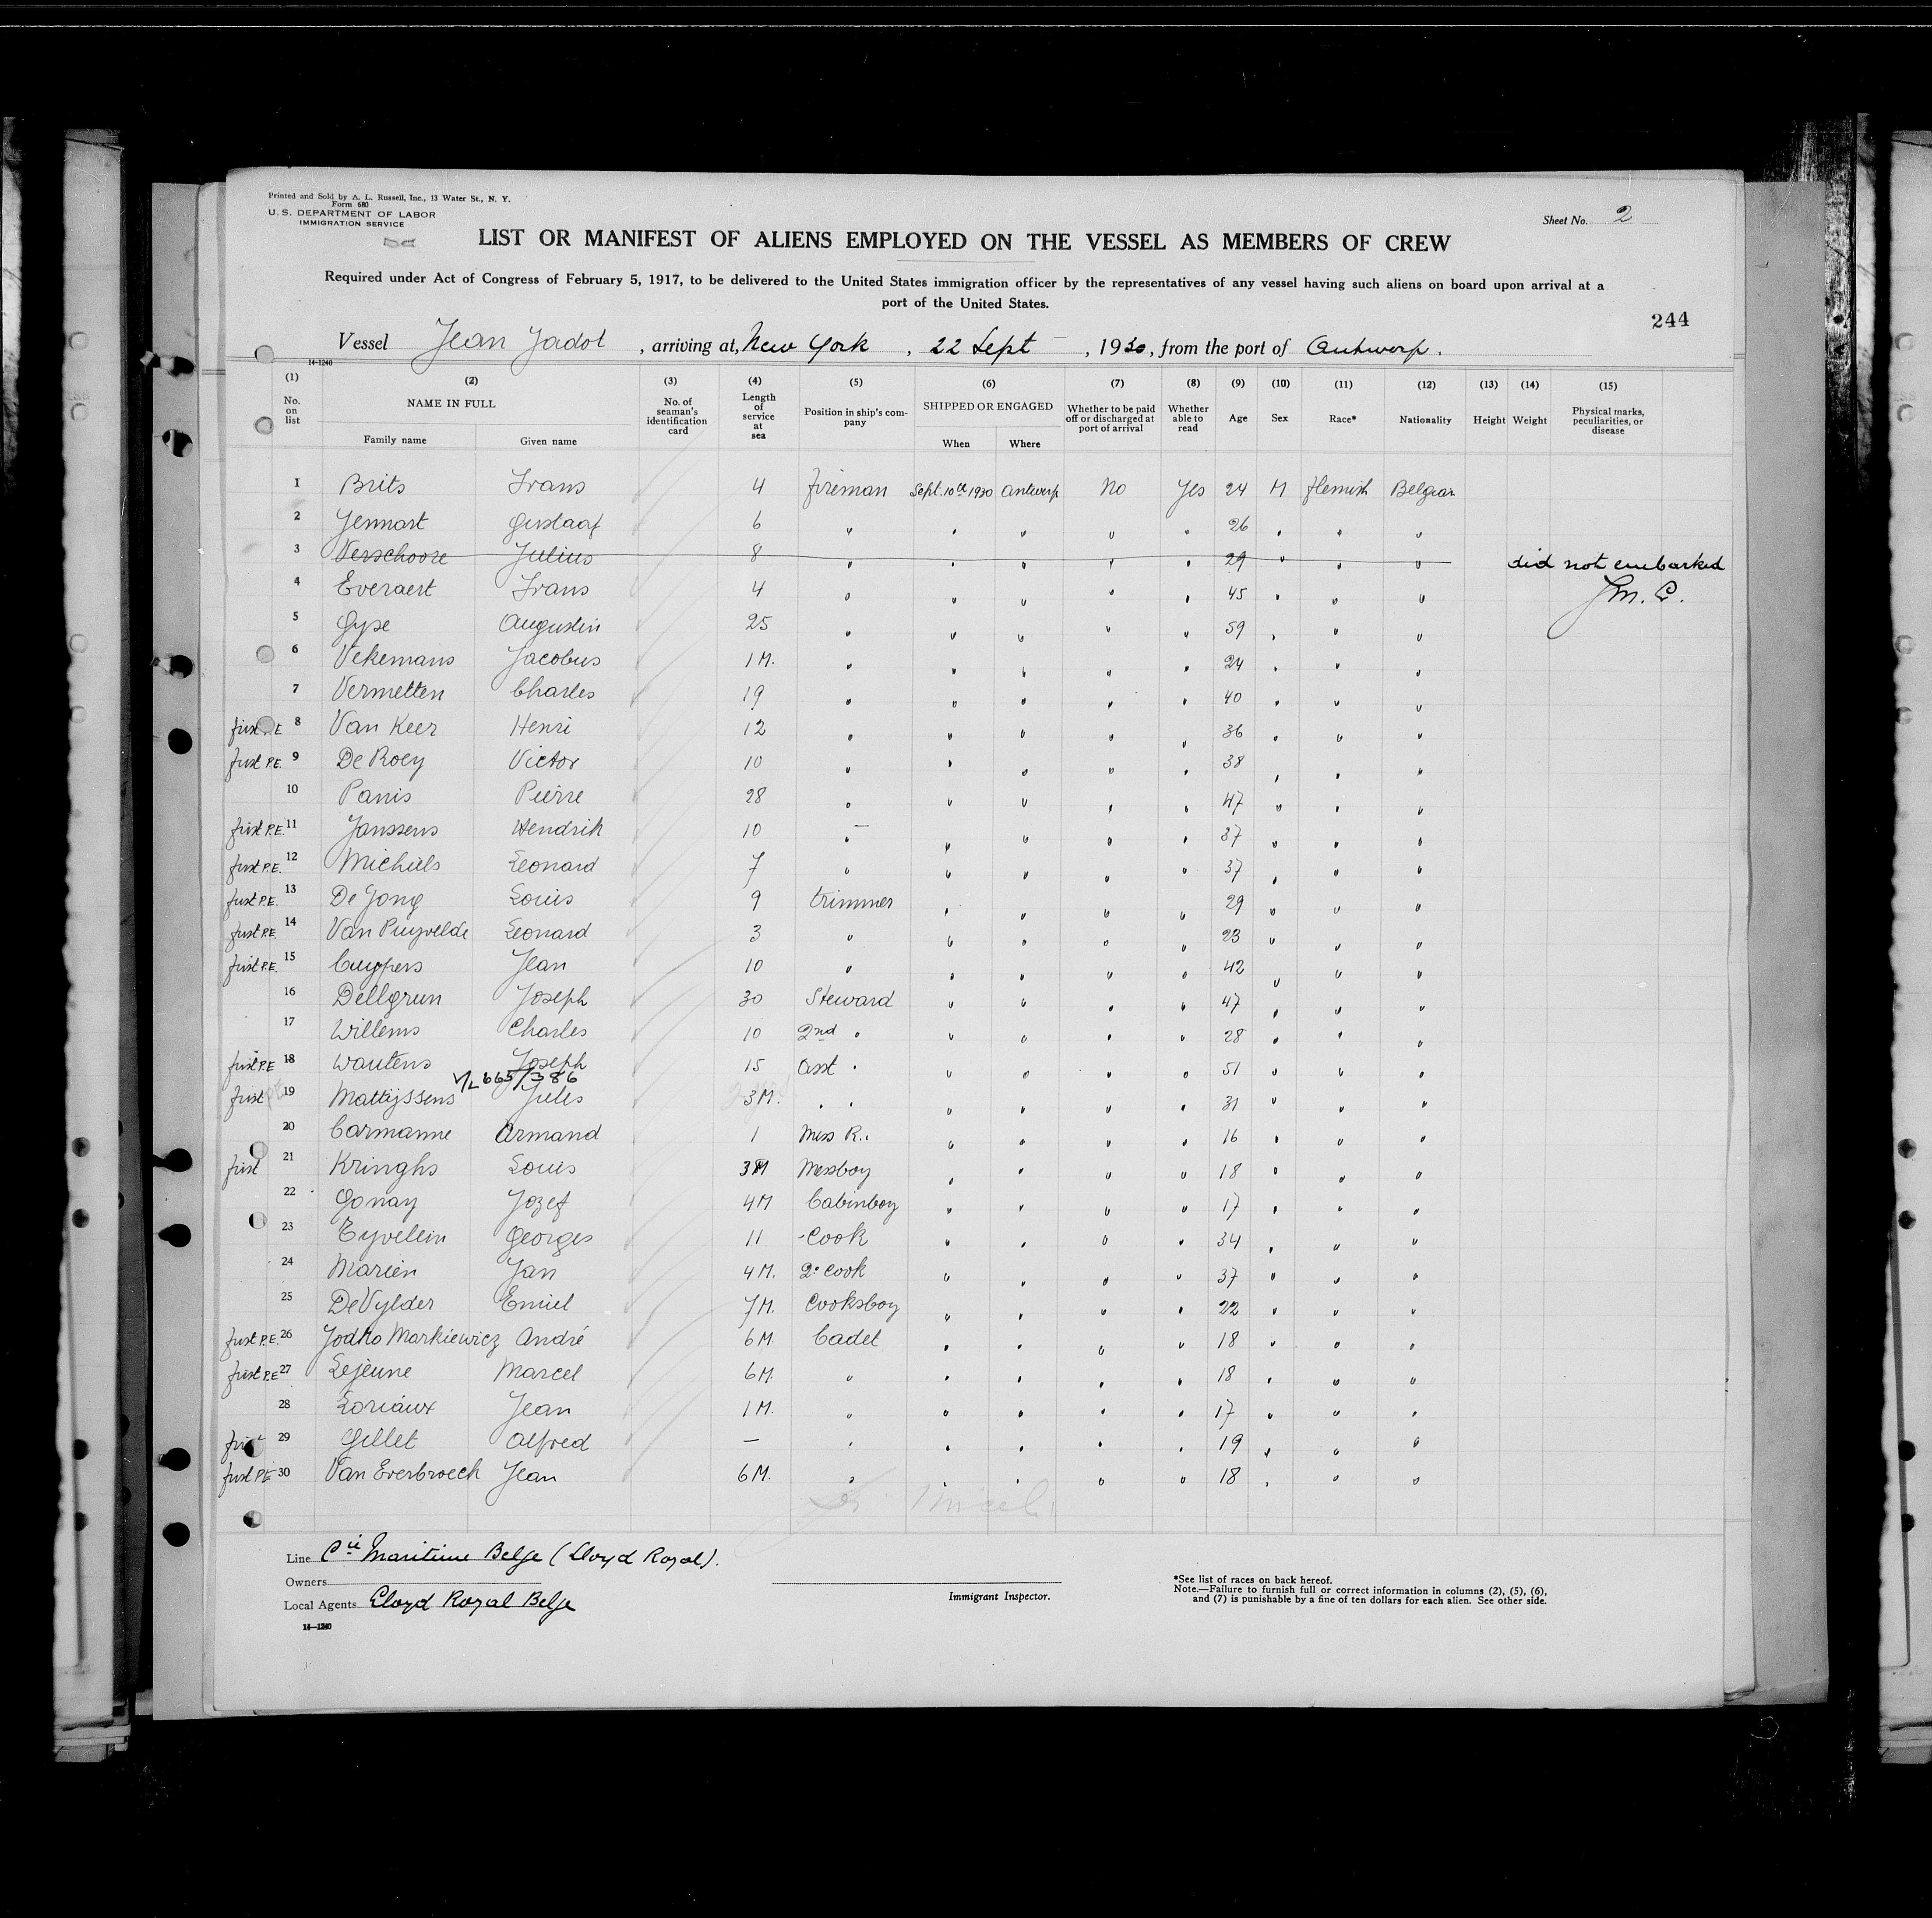 Printed and Sold by A. L. Russell, Inc., 13 Water St., N. Y.
Form 680
U. S. DEPARTMENT OF LABOR
IMMIGRATION SERVICE
Sheet No. 2
LIST OR MANIFEST OF ALIENS EMPLOYED ON THE VESSEL AS MEMBERS OF CREW
Required under Act of Congress of February 5, 1917, to be delivered to the United States immigration officer by the representatives of any vessel having such aliens on board upon arrival at a
port of the United States.
244
Vessel Jean Jadot, arriving at, New York, 22 Sept, 1930, from the port of Antwerp.
14-1240
(1) (2) (3) (4) (5) (6) (7) (8) (9) (10) (11) (12) (13) (14) (15)
No. on list NAME IN FULL Family name Given name No. of seaman's identification card Length of service at sea Position in ship's company SHIPPED OR ENGAGED When Where Whether to be paid off or discharged at port of arrival Whether able to read Age Sex Race* Nationality Height Weight Physical marks, peculiarities, or disease
1 Brits Frans 4 fireman Sept. 10th 1930 Antwerp No Yes 24 M flemish Belgian
2 Jennart Gustaaf 6 " " " " " 26 " " "
3 Verschoore Julius 8 " " " " " 29 " " " did not embarked
4 Everaert Frans 4 " " " " " 45 " " " J.M. C.
5 Gyse Augustin 25 " " " " " 59 " " "
6 Vekemans Jacobus 1 M. " " " " " 24 " " "
7 Vermetten Charles 19 " " " " " 40 " " "
first P.E. 8 Van Keer Henri 12 " " " " " 36 " " "
first P.E. 9 De Roey Victor 10 " " " " " 38 " " "
10 Panis Pierre 28 " " " " " 47 " " "
first P.E. 11 Janssens Hendrik 10 " " " " " 37 " " "
first P.E. 12 Michiels Leonard 7 " " " " " 37 " " "
first P.E. 13 De Jong Louis 9 trimmer " " " " 29 " " "
first P.E. 14 Van Puyvelde Leonard 3 " " " " " 23 " " "
first P.E. 15 Cuypers Jean 10 " " " " " 42 " " "
16 Dellgrun Joseph 30 Steward " " " " 47 " " "
17 Willems Charles 10 2nd " " " " " 28 " " "
first P.E. 18 Wautens Joseph 15 Asst " " " " " 51 " " "
V/L 665/386
first PE 19 Mattyssens Jules 3 M. " " " " " " 31 " " "
20 Carmanne Armand 1 Mess R.. " " " " 16 " " "
first 21 Kringhs Louis 3 M Messboy " " " " 18 " " "
22 Gonay Jozef 4 M Cabinboy " " " " 17 " " "
23 Eyvelein Georges 11 Cook " " " " 34 " " "
24 Marien Jan 4 M. 2e Cook " " " " 37 " " "
25 De Vylder Emiel 7 M. Cooksboy " " " " 22 " " "
first P.E. 26 Jodko Markiewicz André 6 M. Cadet " " " " 18 " " "
first P.E 27 Lejeune Marcel 6 M. " " " " " 18 " " "
28 Loriaux Jean 1 M. " " " " " 17 " " "
first 29 Gillet Alfred — " " " " " 19 " " "
first P.E 30 Van Everbroeck Jean 6 M. " " " " " 18 " " "
Line Cie Maritime Belge (Lloyd Royal).
Owners
Local Agents Lloyd Royal Belge
14—1240
Immigrant Inspector.
*See list of races on back hereof.
Note.—Failure to furnish full or correct information in columns (2), (5), (6),
and (7) is punishable by a fine of ten dollars for each alien. See other side.